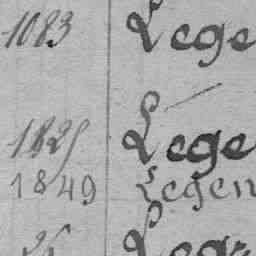 1083 Lege
1825 Lege
1849 Legen
Lege